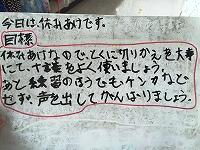 今日は、休みあけです。
目標
休みあけなので、とくに切りかえを大事
にして、十言葉をよく使いましょう。
あと練習のほうでもケンカなど
せず、声を出してがんばりましょう。